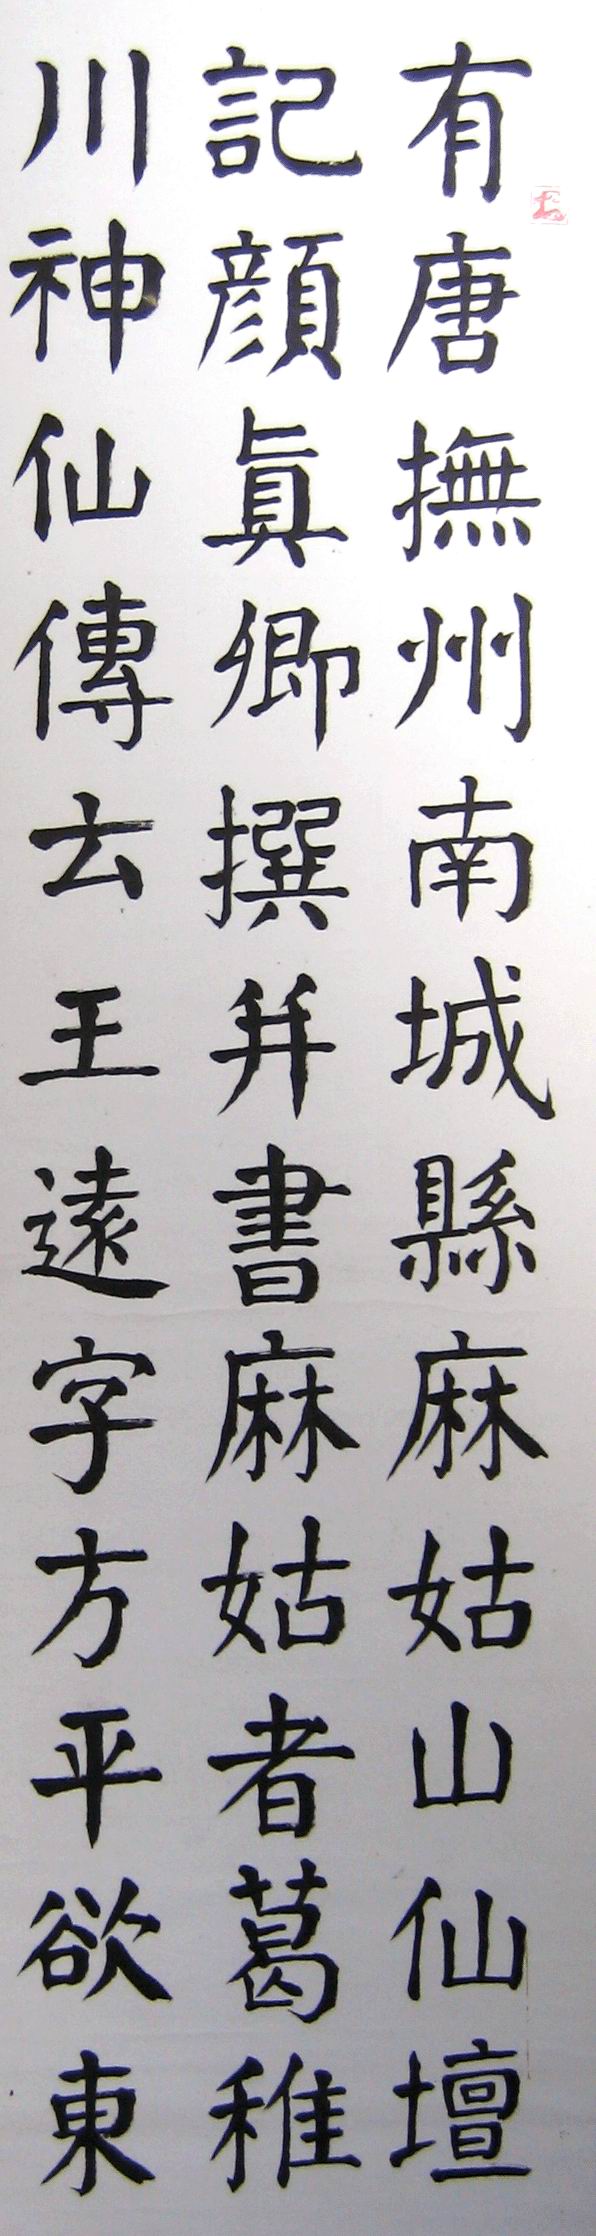 有唐撫州南城縣麻姑山仙壇
記顔眞卿撰并書麻姑者葛稚
川神仙傳云王遠字方平欲東